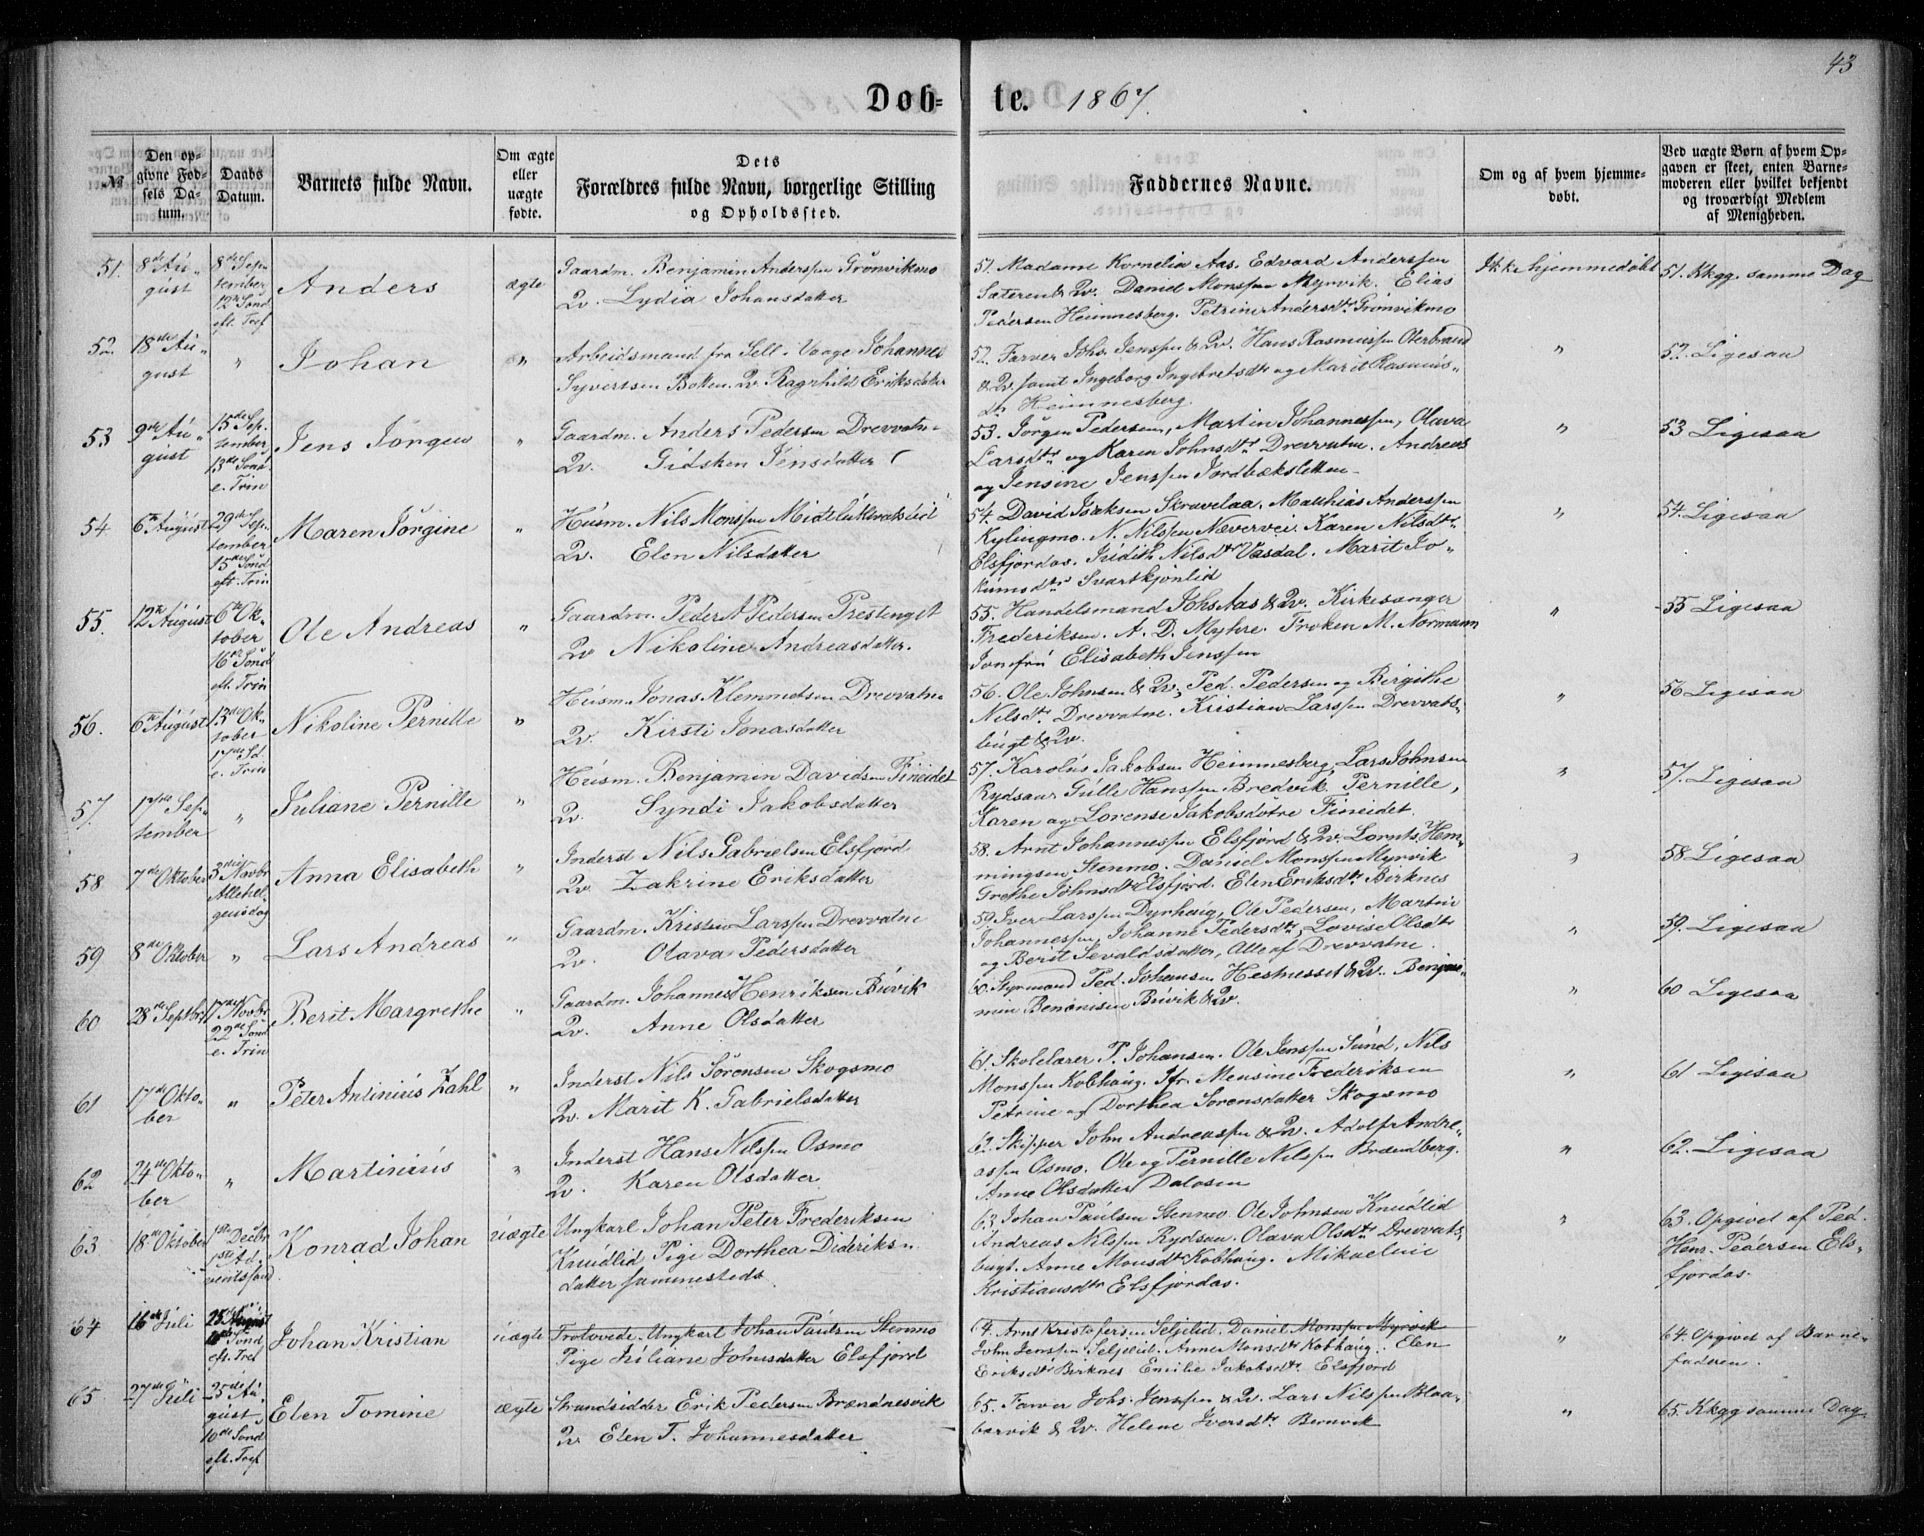 43
Døb- te. 1867.
№
Den op-
givne Fød-
sels Da-
tum.
Daabs
Datum.
Barnets fulde Navn.
Om ægte
eller
uægte
fødte.
Dets
Forældres fulde Navn, borgerlige Stilling
og Opholdssted.
Faddernes Navne.
Om og af hvem hjemme-
døbt.
Ved uægte Børn af hvem Op-
gaven er skeet, enten Barne-
moderen eller hvilket bekjendt
og troværdigt Medlem
af Menigheden.
51.
8de Au-
gust
8de Sep-
tember
12te Sønd
eft. Tref
Anders
ægte
Gaardm. Benjamin Anderssen Grønvikmo
Qv. Lydia Johansdatter
51. Madame Kornelia Aas. Edvard Anderssen
Sæteren & Qv. Daniel Monssen Myrvik. Elias
Pedersen Hemnesberg. Petrine Andersdtr Grønvikmo
Ikke hjemmedøbt
51. Kkgg. samme Dag
52.
18de Au-
gust
"
Johan
"
Arbeidsmand fra Sell i Vaage Johannes
Syvertsen Bakken. Qv. Ragnhild Eriksdatter
52. Farver Johs. Jenssen & Qv. Hans Rasmussen Oterbrand
& Qv. samt Ingeborg Ingebretsdtr og Marit Rasmus-
dtr Hemnesberg.
"
52. Ligesaa
53
9de Au-
gust
15de Sep-
tember
13de Sønd
e. Trin
Jens Jørgen
"
Gaardm. Anders Pedersen Drevvatne
Qv. Gidsken Jensdatter
53. Jørgen Pedersen, Martin Johannessen, Olava
Larsdtr og Karen Johnsdtr Drevvatne. Andreas
og Jensine Jenssen Jordbækslettene
"
53 Ligesaa
54
6te August
29de Sep-
tember
15de Sønd
eft. Trin
Maren Jørgine
"
Husm. Nils Monssen
Qv. Elen Nilsdatter
54. David Isaksen Skravelaa. Matthias Anderssen
Kylingmo. N. Nilssen Nævervei. Karen Nilsdtr
Elsfjordas. Judith Nilsdtr Vasdal. Marit Jo-
kumsdtr Svartkjønlid
"
54. Ligesaa
55.
12te August
6te Ok-
tober
16de Sønd
eft. Trin
Ole Andreas
"
Gaardm. Peder A Pedersen Prestenget
Qv Nikoline Andreasdatter.
55. Handelsmand Johs Aas & Qv. Kirkesanger
Frederiksen. A. D. Myhre. Frøken M. Normann
Jomfru Elisabeth Jenssen
"
55 Ligesaa
56.
6te August
13de Ok-
tober
17de Sd.
e. Trin
Nikoline Pernille
"
Husm. Jonas Klemmetsen Drevvatne
Qv. Kirsti Jonasdatter
56. Ole Johnsen & Qv. Ped. Pedersen og Birgithe
Nilsdtr Drevvatne. Kristian Larssen Drevvats-
bugt & Qv.
"
56 Ligesaa
57.
17de Sep-
tember
"
Juliane Pernille
"
Husm. Benjamin Davidsen Fineidet
Qv. Syndi Jakobsdatter
57. Karolus Jakobsen Hemnesberg, Lars Johnsen
Rydsaa, Gulle Hanssen Bredvik. Pernille,
Karen og Lorense Jakobsdøtre Fineidet
"
57. Ligesaa
58
7de Oktober
3die Novbr
Allehel-
gensdag
Anna Elisabeth
"
Inderst Nils Gabrielsen Elsfjord
Qv. Zakrine Eriksdatter
58. Arnt Johannessen Elsfjord & Qv. Lornts Hem-
mingsen Stenmo. Daniel Monssen Myrvik
Grethe Johnsdtr Elsfjord. Elen Eriksdtr Birknes
"
58 Ligesaa
59
8de Oktober
"
Lars Andreas
"
Gaardm. Kristen Larssen Drevvatne
Qv. Olava Pedersdatter
59. Iver Larssen Dyrhaug, Ole Pedersen, Martin
Johannessen, Johanne Pedersdtr, Lovise Olsdtr
og Berit Sevaldsdatter, Alle af Drevvatne.
"
59. Ligesaa
60
28de Septbr
17de Novbr
22de Sønd
e. Trin
Berit Margrethe
"
Gaardm. Johannes Henriksen Buvik
Qv. Anne Olsdatter
60. Styrmand Ped. Johansen Hesnesset & Qv. Benja-
min Benonisen Buvik & Qv.
"
60 Ligesaa
61
17de Okto-
ber
"
Peter Antinius Zahl
"
Inderst Nils Sørensen Skogsmo
Qv. Marit K. Gabrielsdatter
61. Skolelærer P. Johansen. Ole Jenssen Sund, Nils
Monssen Kobhaug. Jfr. Mensine Frederiksen
Petrine og Dorthea Sørensdatter Skogsmo
"
61 Ligesaa
62
24de Okto-
ber
"
Martinius
"
Inderst Hans Nilssen Osmo
Qv. Karen Olsdatter
62. Skipper John Andreassen & Qv. Adolf Andre-
assen Osmo. Ole og Pernille Nilssen Brændberg.
Anne Olsdatter Dalosen
"
62. Ligesaa
63.
18de Oktober
1ste Decbr
1ste Ad-
ventssønd
Konrad Johan
uægte
Ungkarl Johan Peter Frederiksen
Knudlid Pige Dorthea Dideriks-
datter sammesteds
63. Johan Paulsen Stenmo. Ole Johnsen Knudlid
Andreas Nilssen Rydsaa. Olava Olsdtr Drevvats-
bugt. Anne Monsdtr Kobhaug. Mikaeline
Kristiansdtr Elsfjordas.
"
63. Opgivet af Ped.
Henr. Pedersen Els-
fjordas.
64
16de Juli
25de August
10de Sønd
eft. Tref
Johan Kristian
uægte
Trolovede. Ungkarl Johan Paulsen Stenmo
Pige Juliane Johnsdatter Elsfjord
64. Arnt Kristofersen Seljelid. Daniel Monssen Myrvik
John Jenssen Seljelid. Anne Monsdtr Kobhaug. Elen
Eriksdtr Birknes Emilie Jakobsdtr Elsfjord
"
64. Opgivet af Barne-
faderen.
65.
27de Juli
25de Au-
gust
10de Sønd
eft. Tref
Elen Tomine
ægte
Strandsidder Erik Pedersen Brændnesvik
Qv Elen T. Johannesdatter
65. Farver Johs. Jenssen & Qv. Lars Nilssen Blaa-
bærvik & Qv. Helene Iversdtr Bernvik
"
65. Kkgg samme Dag